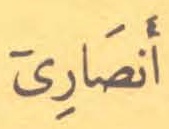 أَنصَارِىٓ